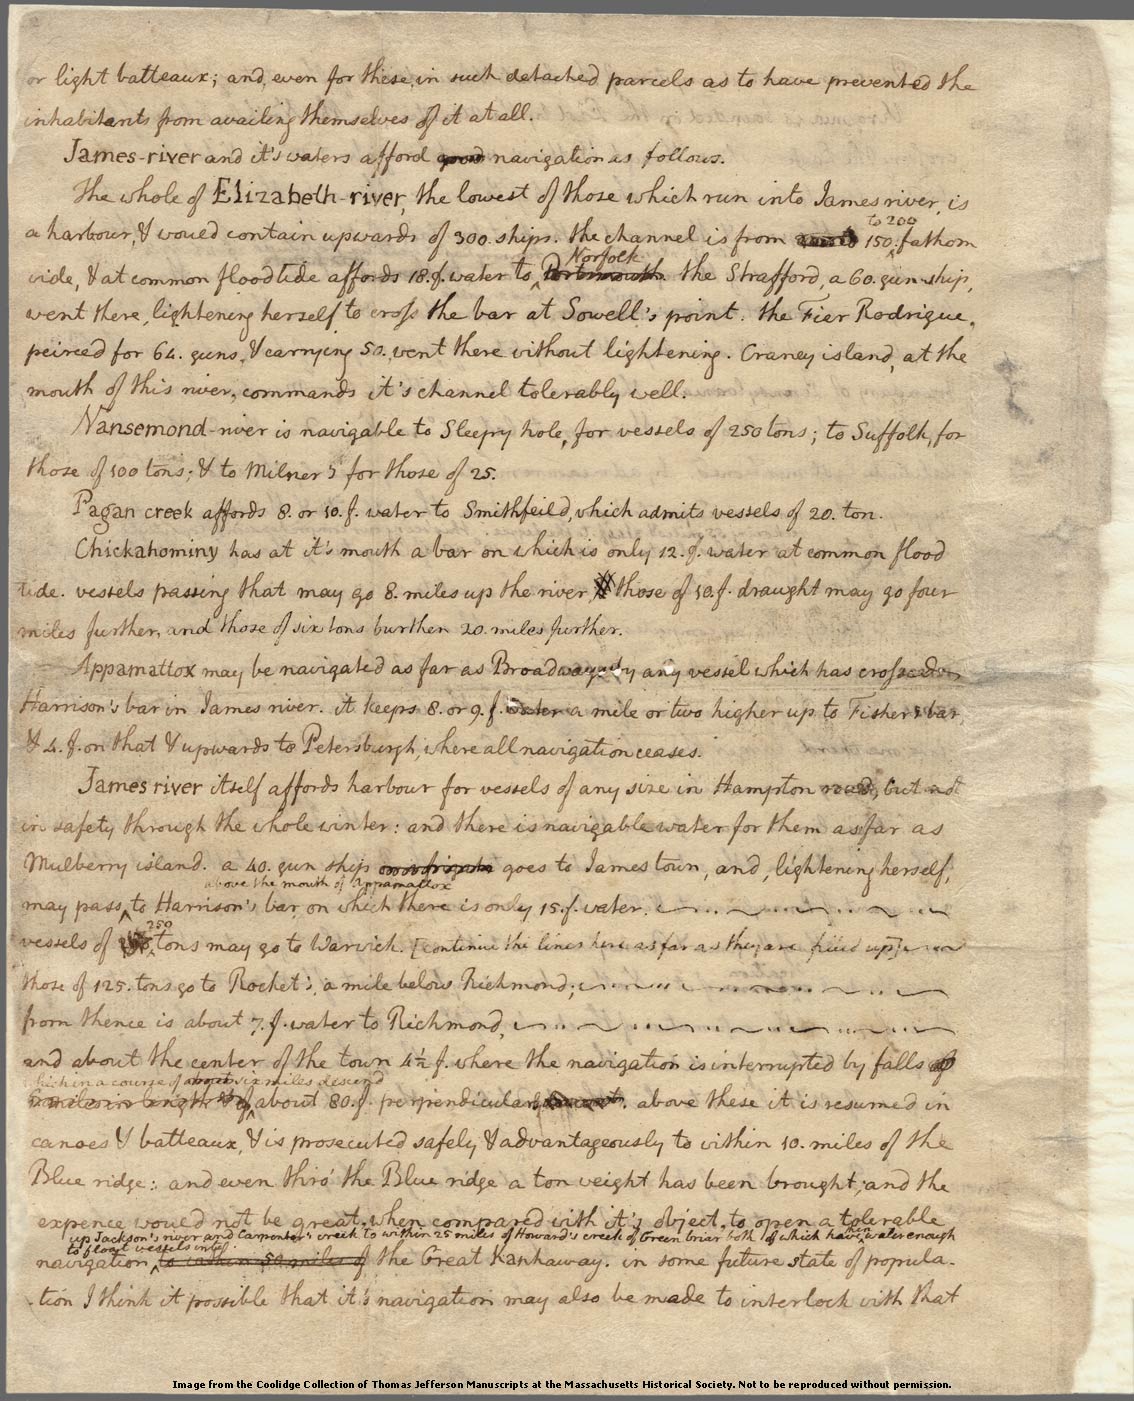 or light batteaux; and, even for these, in such detached parcels as to have prevented the
inhabitants from availing themselves of it at all.
James-river and it's waters afford good navigation as follows.
The whole of Elizabeth-river, the lowest of those which run into James river, is
a harbour, & would contain upwards of 300. ships. the channel is from 150. fathom
to 200
wide, & at common flood tide affords 18.f. water to Portsmouth. the Strafford, a 60. gun ship,
Norfolk
went there, lightening herself to cross the bar at Sowell's point. the Fier Rodrigue,
peirced for 64. guns, & carrying 50. went there without lightening. Craney island, at the
mouth of this river, commands it's channel tolerably well.
Nansemond-river is navigable to Sleepy hole, for vessels of 250 tons; to Suffolk, for
those of 100 tons; & to Milner's for those of 25.
Pagan creek affords 8. or 10.f. water to Smithfeild, which admits vessels of 20. ton.
Chickahominy has at it's mouth a bar on which is only 12.f. water at common flood
tide. vessels passing that may go 8. miles up the river those of 10.f. draught may go four
miles further, and those of six tons burthen 20. miles further.
Appamattox may be navigated as far as Broadways by any vessel which has crossed
Harrison's bar in James river. it keeps 8. or 9.f. water a mile or two higher up to Fisher's bar,
& 4.f. on that & upwards to Petersburgh, where all navigation ceases.
James river itself affords harbour for vessels of any size in Hampton road, but not
in safety through the whole winter: and there is navigable water for them as far as
Mulberry island. a 40. gun ship goes to James town, and, lightening herself,
above the mouth of Appamattox
may pass to Harrison's bar, on which there is only 15.f. water.
250
vessels of tons may go to Warwick. [continue the lines here as far as they are filled up]
those of 125. tons go to Rocket's, a mile below Richmond;
from thence is about 7.f. water to Richmond,
and about the center of the town 4½ f. where the navigation is interrupted by falls of
which in a course of about six miles descend
miles in length & of about 80.f. perpendicular. above these it is resumed in
canoes & batteaux, & is prosecuted safely & advantageously to within 10. miles of the
Blue ridge: and even thro' the Blue ridge a ton weight has been brought; and the
expence would not be great, when compared with it's object, to open a tolerable
up Jackson's river and Carpenter's creek to within 25 miles of Howard's creek of Green briar both of which have then water enough
to float vessels into
navigation to within 50 miles of the Great Kanhaway. in some future state of popula-
tion I think it possible that it's navigation may also be made to interlock with that
Image from the Coolidge Collection of Thomas Jefferson Manuscripts at the Massachusetts Historical Society. Not to be reproduced without permission.